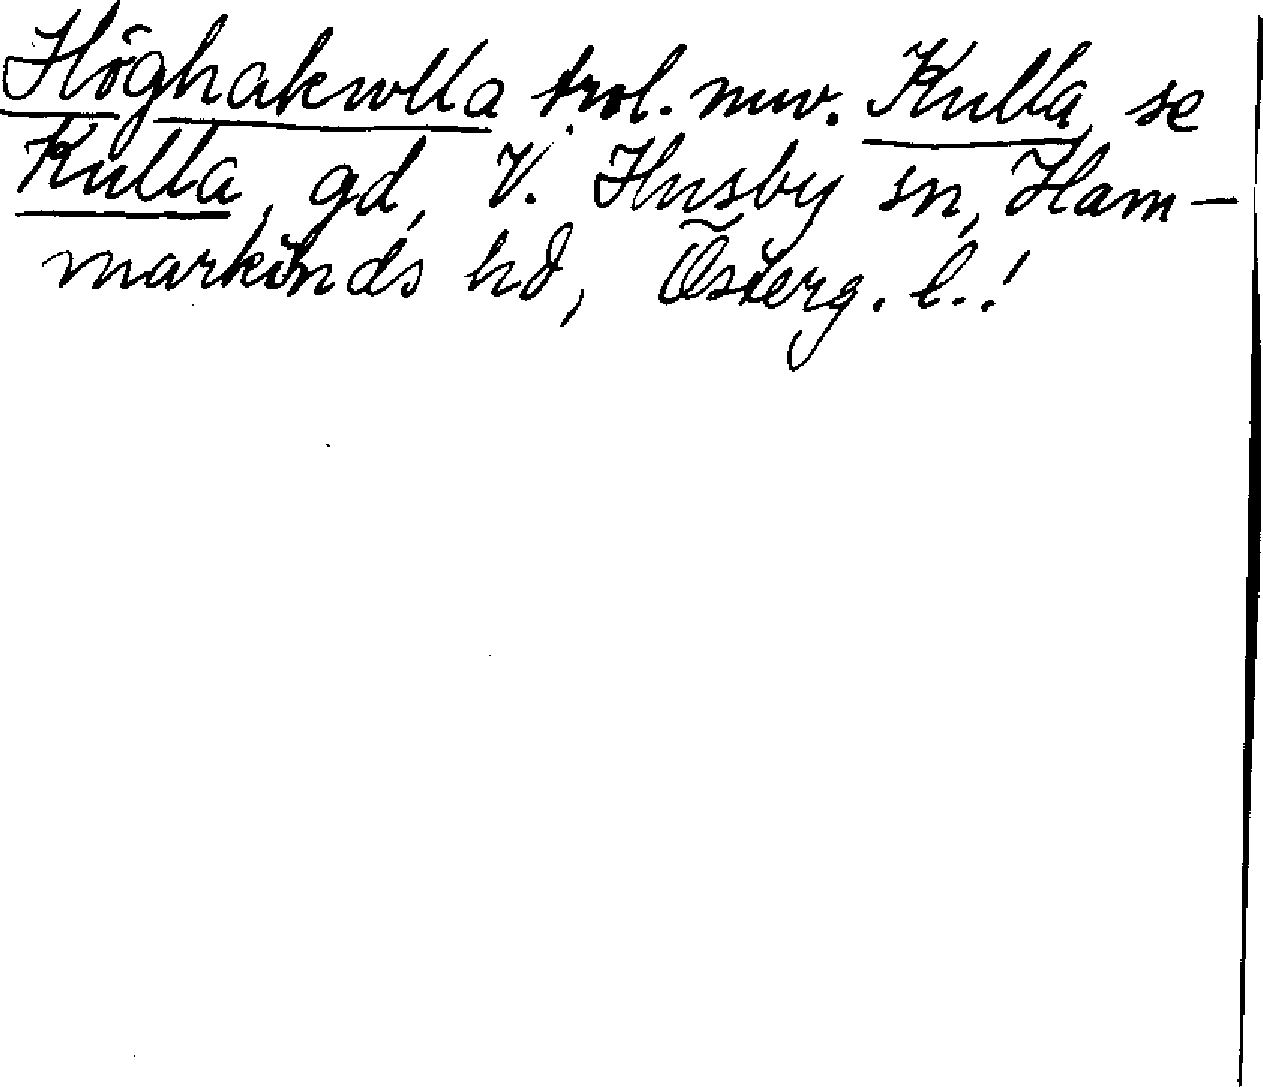 Höghakwlla trol. nuv. Kulla, se
Kulla, gd, V. Husby sn, Ham-
markinds hd, Österg. l.!